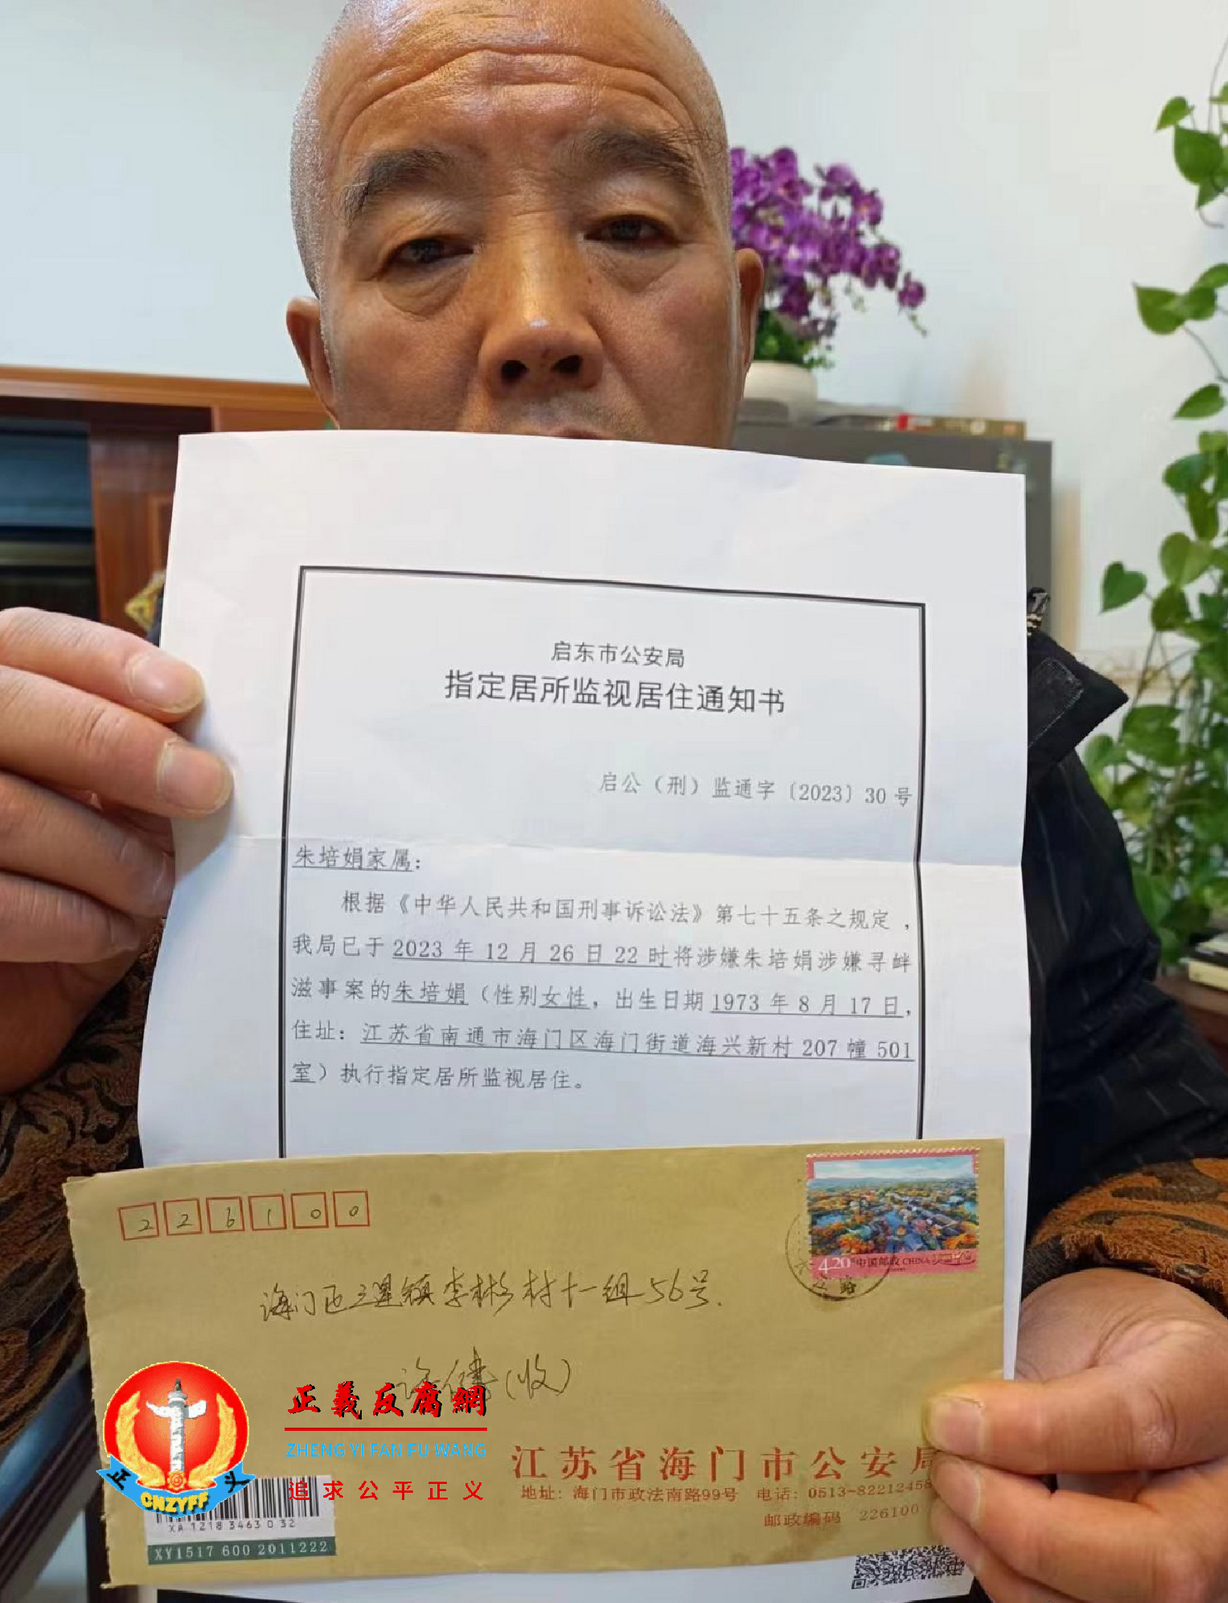 启东市公安局
指定居所监视居住通知书
启公（刑）监通字〔2023〕30号
朱培娟家属：
根据《中华人民共和国刑事诉讼法》第七十五条之规定，
我局已于2023年12月26日22时将涉嫌朱培娟涉嫌寻衅
滋事案的朱培娟（性别女性，出生日期1973年8月17日，
住址：江苏省南通市海门区海门街道海兴新村207幢501
室）执行指定居所监视居住。
226100
4.20 中国邮政 CHINA
海门区三星镇李彬村十一组56号.
(收)
正義反腐網
ZHENG YI FAN FU WANG
追求公平正义
正 义
CNZYFF
江苏省海门市公安局
地址：海门市政法南路99号 电话：0513-82212458
邮政编码 226100
XA 1218 3463 0 32
XY1517 600 2011222